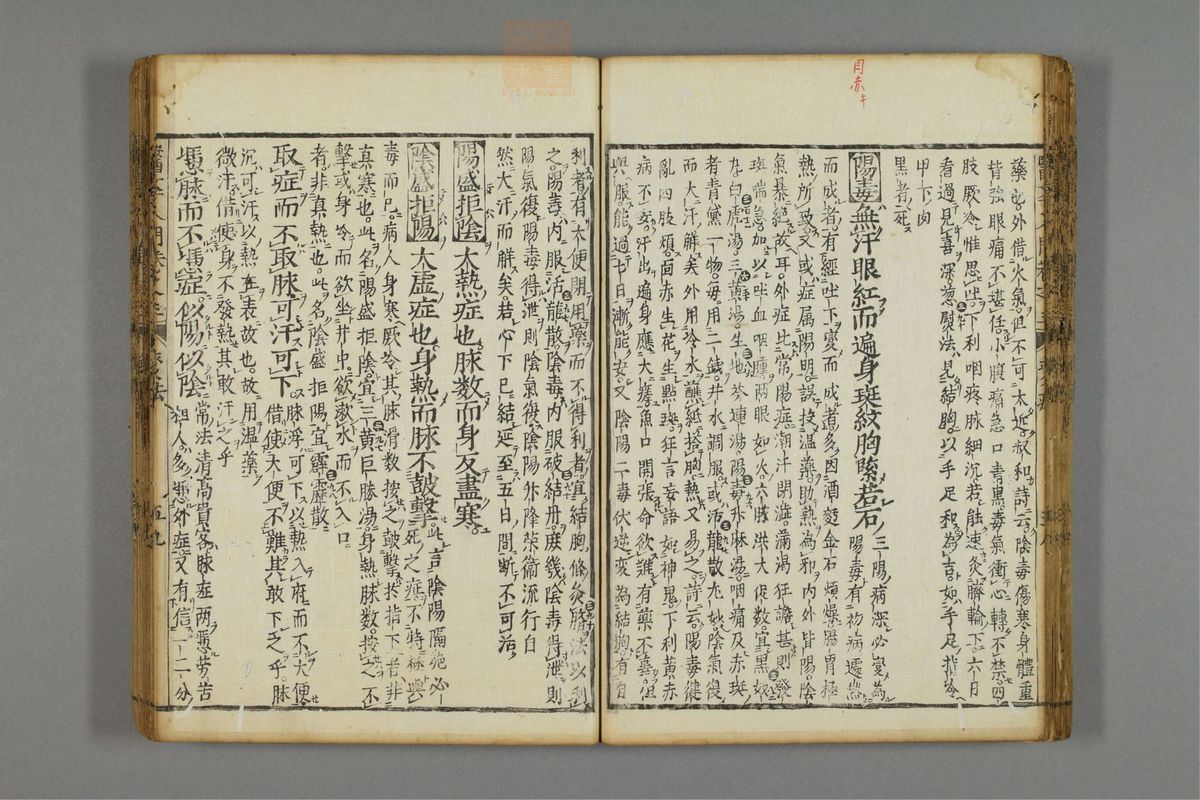 藥宓外借火氣但不可太近叔和詩云陰毒傷寒身體重
背強眼痛不堪任小腹痛急口青黑毒氣衝心轉不禁四
肢厥冷惟思吐下利咽疼脉細沉若能速灸臍輪下六日
看過見喜深葱熨法見結胸以手足和為吉如手足指冷
甲下肉
黑者死
陽毒無汗眼紅而遍身斑紋胸緊若石三陽病深必變為
陽毒有初病遽然
而成者有經吐下變而成者多因酒麵金石煩燥腸胃極
熱所致又或症属陽明誤投温藥助熱為邪内外皆陽陰
氣暴絕故耳外症比常陽症潮汗閉澁滿渴狂譫甚則發
斑喘急加以吐血咽腫两眼如火六脉洪大促数宜黑奴
丸白虎湯三黄湯生地芩連湯陽毒升麻湯咽痛及赤斑
者青黛一物每用二錢井水調服或活龍散尤妙陰氣復
而大汗解矣外用冷水蘸紙搭胸熱又易之詩云陽毒健
亂四肢煩面赤生花生點斑狂言妄語如神鬼下利黄赤
病不安汗出遍身應大瘥魚口開張命欲難有藥不
與服能過七日漸能安又陰陽二毒伏逆变為結胸有
利者有大便閉用藥而不得利者宜結胸條灸臍法以利
之陽毒内服活龍散陰毒内服破結丹庶幾陰毒得泄則
陽氣復陽毒得泄則陰氣復陰陽升降榮衛流行自
然大汗而解矣若心下已結延至五日間斷不可治
陽盛拒陰太熱症也脉数而身反盡寒
陰盛拒陽大虚症也身熱而脉不鼓擊此言陰陽隔绝必
死之症不特極與
毒而已病人身寒厥冷其脉滑数按之鼓擊於指下者非
真寒也此名陽盛拒陰宜三黄巨勝湯身熱脉数按之不
擊或身冷而欲坐井中欲漱水而不入口
者非真熱也此名陰盛拒陽宜霹靂散
取症而不取脉可汗可下脉浮可下以熱入府而不大便
借使大便不難其敢下乎脉
沉可汗以熱在表故也故用温藥
微汗借使身不發熱其敢汗之乎
慿脉而不慿症似陽似陰常法清高貴客脉症两慿劳苦
粗人多慿外症又有信一二分